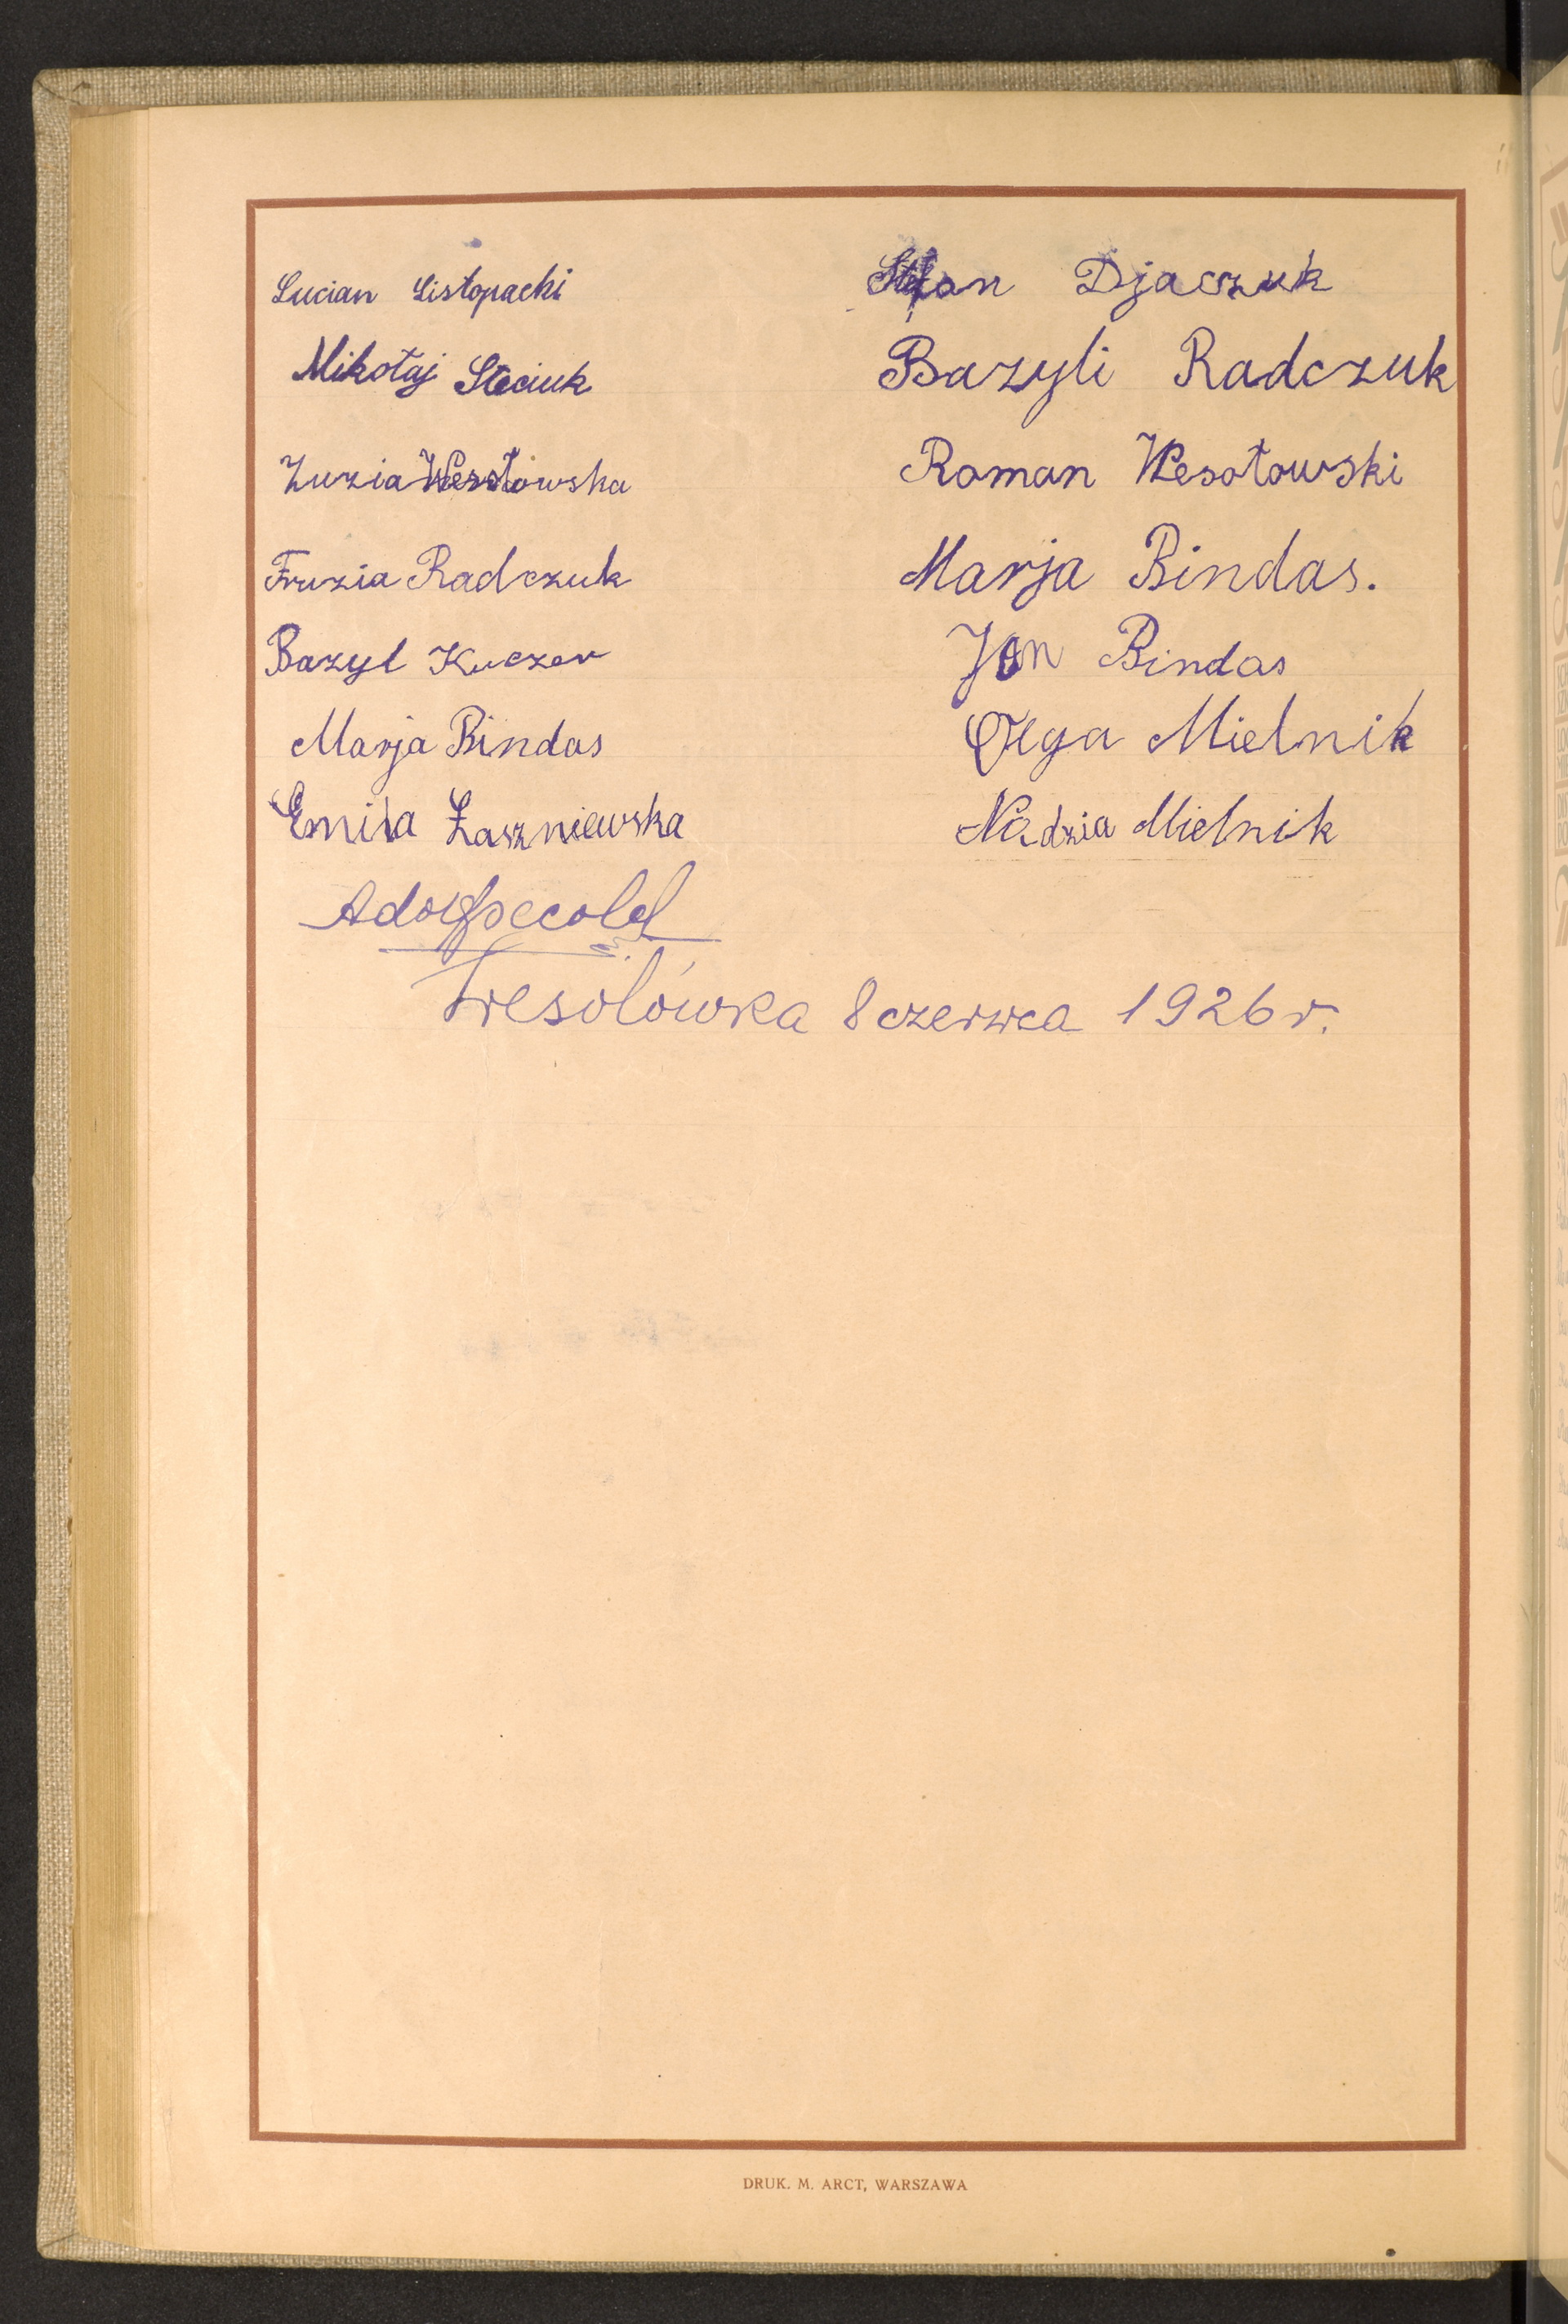 Lucian Listopacki
Mikołaj Steciuk
Zuzia Wesołowska
Fruzia Radczuk
Bazyl Kuczer
Marja Bindas
Emila Łaszniewska
Stefan Djaczuk
Bazyli Radczuk
Roman Wesołowski
Marja Bindas.
Jan Bindas
Olga Mielnik
Nadzia Mielnik
Wesolówka 8 czerwca 1926 r.
DRUK. M. ARCT, WARSZAWA